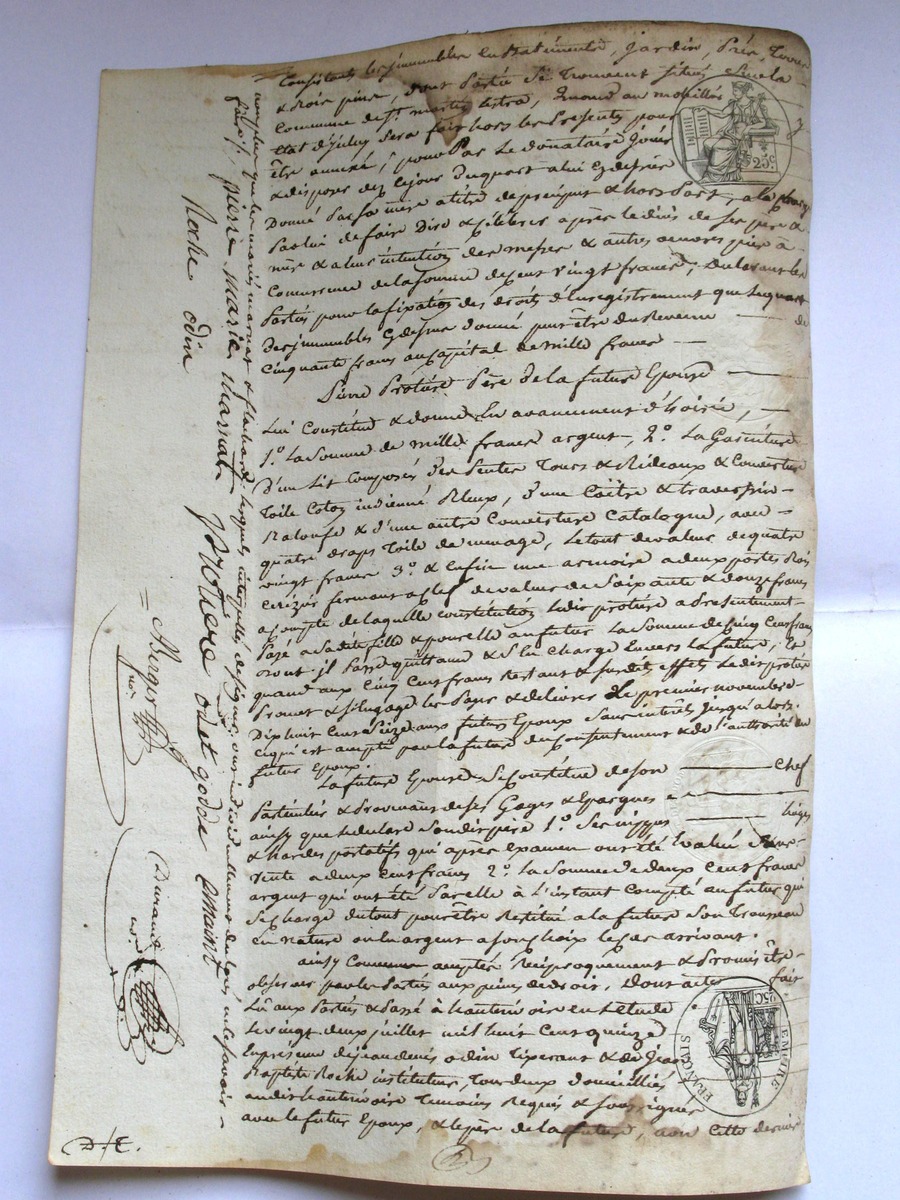 Consistant les immeubles en batiments, jardin, Prés, Terres
& bois pins, dont Partie se Trouvent situés sur la
Commune de St. martin lestra, Quand au mobillier
état d'iceluy sera fait hors les Présents pour
être annexé, pour Par Le donataire jouir
& disposer dez cejour du quart a lui cydessus
Donné Par sa mere a titre de preciput & hors Part, a la charge
Par lui de faire Dire & célébrer après le décès de ses père &
mère & a leur intention des messes & autres oeuvres pies à
Concurrence de la somme de cent vingt francs, Déclarant les
Parties pour la fixation des droits d'Enregistrement que le quart
Des immeubles cydessus donné peut être du Revenu de
cinquante francs au capital de mille francs
Pierre Protière Père de la future Epouse
Lui Constitue & donne En avancement d'hoirie,
1.º La Somme de mille francs argent, 2.º La Garniture
D'un Lit composée de Pentes Tours & Rideaux & Couverture
Toile Coton indienné Bleux, d'une Coitre & traverspin
& d'une autre Couverture Catalogne, avec
quatre draps Toile de menage, le tout de valeur de quatre
vingt francs 3.º & Enfin une armoire a deux portes Bois
Cerizier fermant a clef de valeur de Soixante & douze francs
acompte de laquelle constitution ledit protière a Présentement
Payé a sa dite fille & pour elle au futur La Somme de cinq Cent francs
Dont il Passe quittance & s'En Charge Envers la future, Et
quand aux Cinq Cent francs Restant & susdits effets Le dit protière
Promet & s'Engage les Payer & délivrer Le premier novembre
Dix huit Cent Seize aux futurs Epoux Sans intérêts jusqu'alors.
ce qui est accepté par la future du consentement & de l'authorité du
futur Epoux.
La future Epouse Se Constitue de son Chef
Particulier & Provenant de ses Gages & Epargnes
ainsy que le declare Son dit père 1.º Ses nippes linges
& hardes portatifs qui après Examen ont été Evalués
a deux cent francs 2.º La Somme de deux Cent francs
argent qui ont été Par elle à l'instant Compté au futur qui
Se Charge du tout pour être Restitué a la future Son Trousseau
En nature ou En argent a son choix le cas arrivant.
ainsy Convenu accepté Réciproquement & Promis être
observé par les Parties aux peines de droit, Dont acte fait
Lû aux Parties & Passé à hauterivoire en L'Etude
Le vingt deux juillet mil huit Cent quinze
En présence de jean denis odin Tisserant & de Jean
Baptiste Roche instituteur, Tous deux domiciliés
audit hauterivoire Temoins Requis & Soussignés
avec le futur Epoux, & le père de la future, non cette derniere
non plus que les mariés marnat & flachard lesquels interpellés de signer ont individuellement déclaré ne le savoir
fait,
pierre marie marnat Protiere odet godde amaint
Roche odin
Berger
Durand
25c.
25c.
EMPIRE FRANÇAIS
D. E.